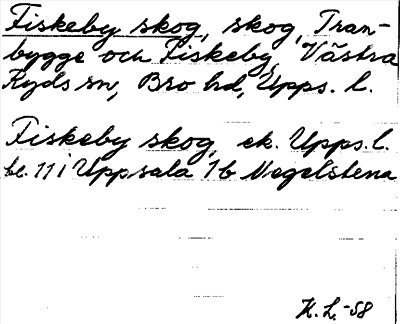 Fiskeby skog, skog, Tran-
bygge och Fiskeby, Västra
Ryds sn, Bro hd, Upps. l.
Fiskeby skog, ek. Upps. l.
bl. 11 i Uppsala 1b Negelstena
K. L. -58